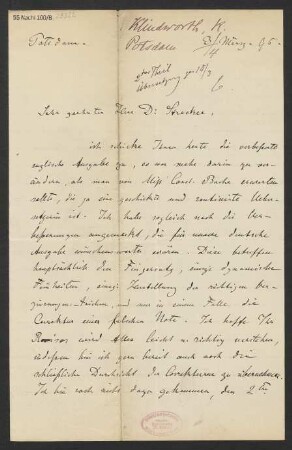 55 Nachl 100/B
Klindworth, K.
Potsdam.
Potsdam
März 95.
2ten Theil
Übersetzung
Sehr geehrter Herr Dr Strecker,
ich schicke Ihnen heute die verbesserte
englische Ausgabe zu, es war mehr darin zu ver-
ändern, als man von Miss Const. Bache erwarten
sollte, die ja eine geschickte und renommirte Ueber-
setzerin ist. Ich habe zugleich noch die Ver-
besserungen angemerkt, die für unsere deutsche
Ausgabe wünschenswerth wären. Diese betreffen
hauptsächlich den Fingersatz, einige dynamische
Feinheiten, einige Herstellung der richtigen Ver-
zierungs-Zeichen, und nur in einem Falle die
Correktur einer falschen Note. Ich hoffe Ihr
Revisor wird Alles leicht u. richtig verstehen,
indessen bin ich gern bereit auch noch die
schliessliche Durchsicht der Correkturen zu übernehmen.
Ich bin noch nicht dazu gekommen, den 2ten